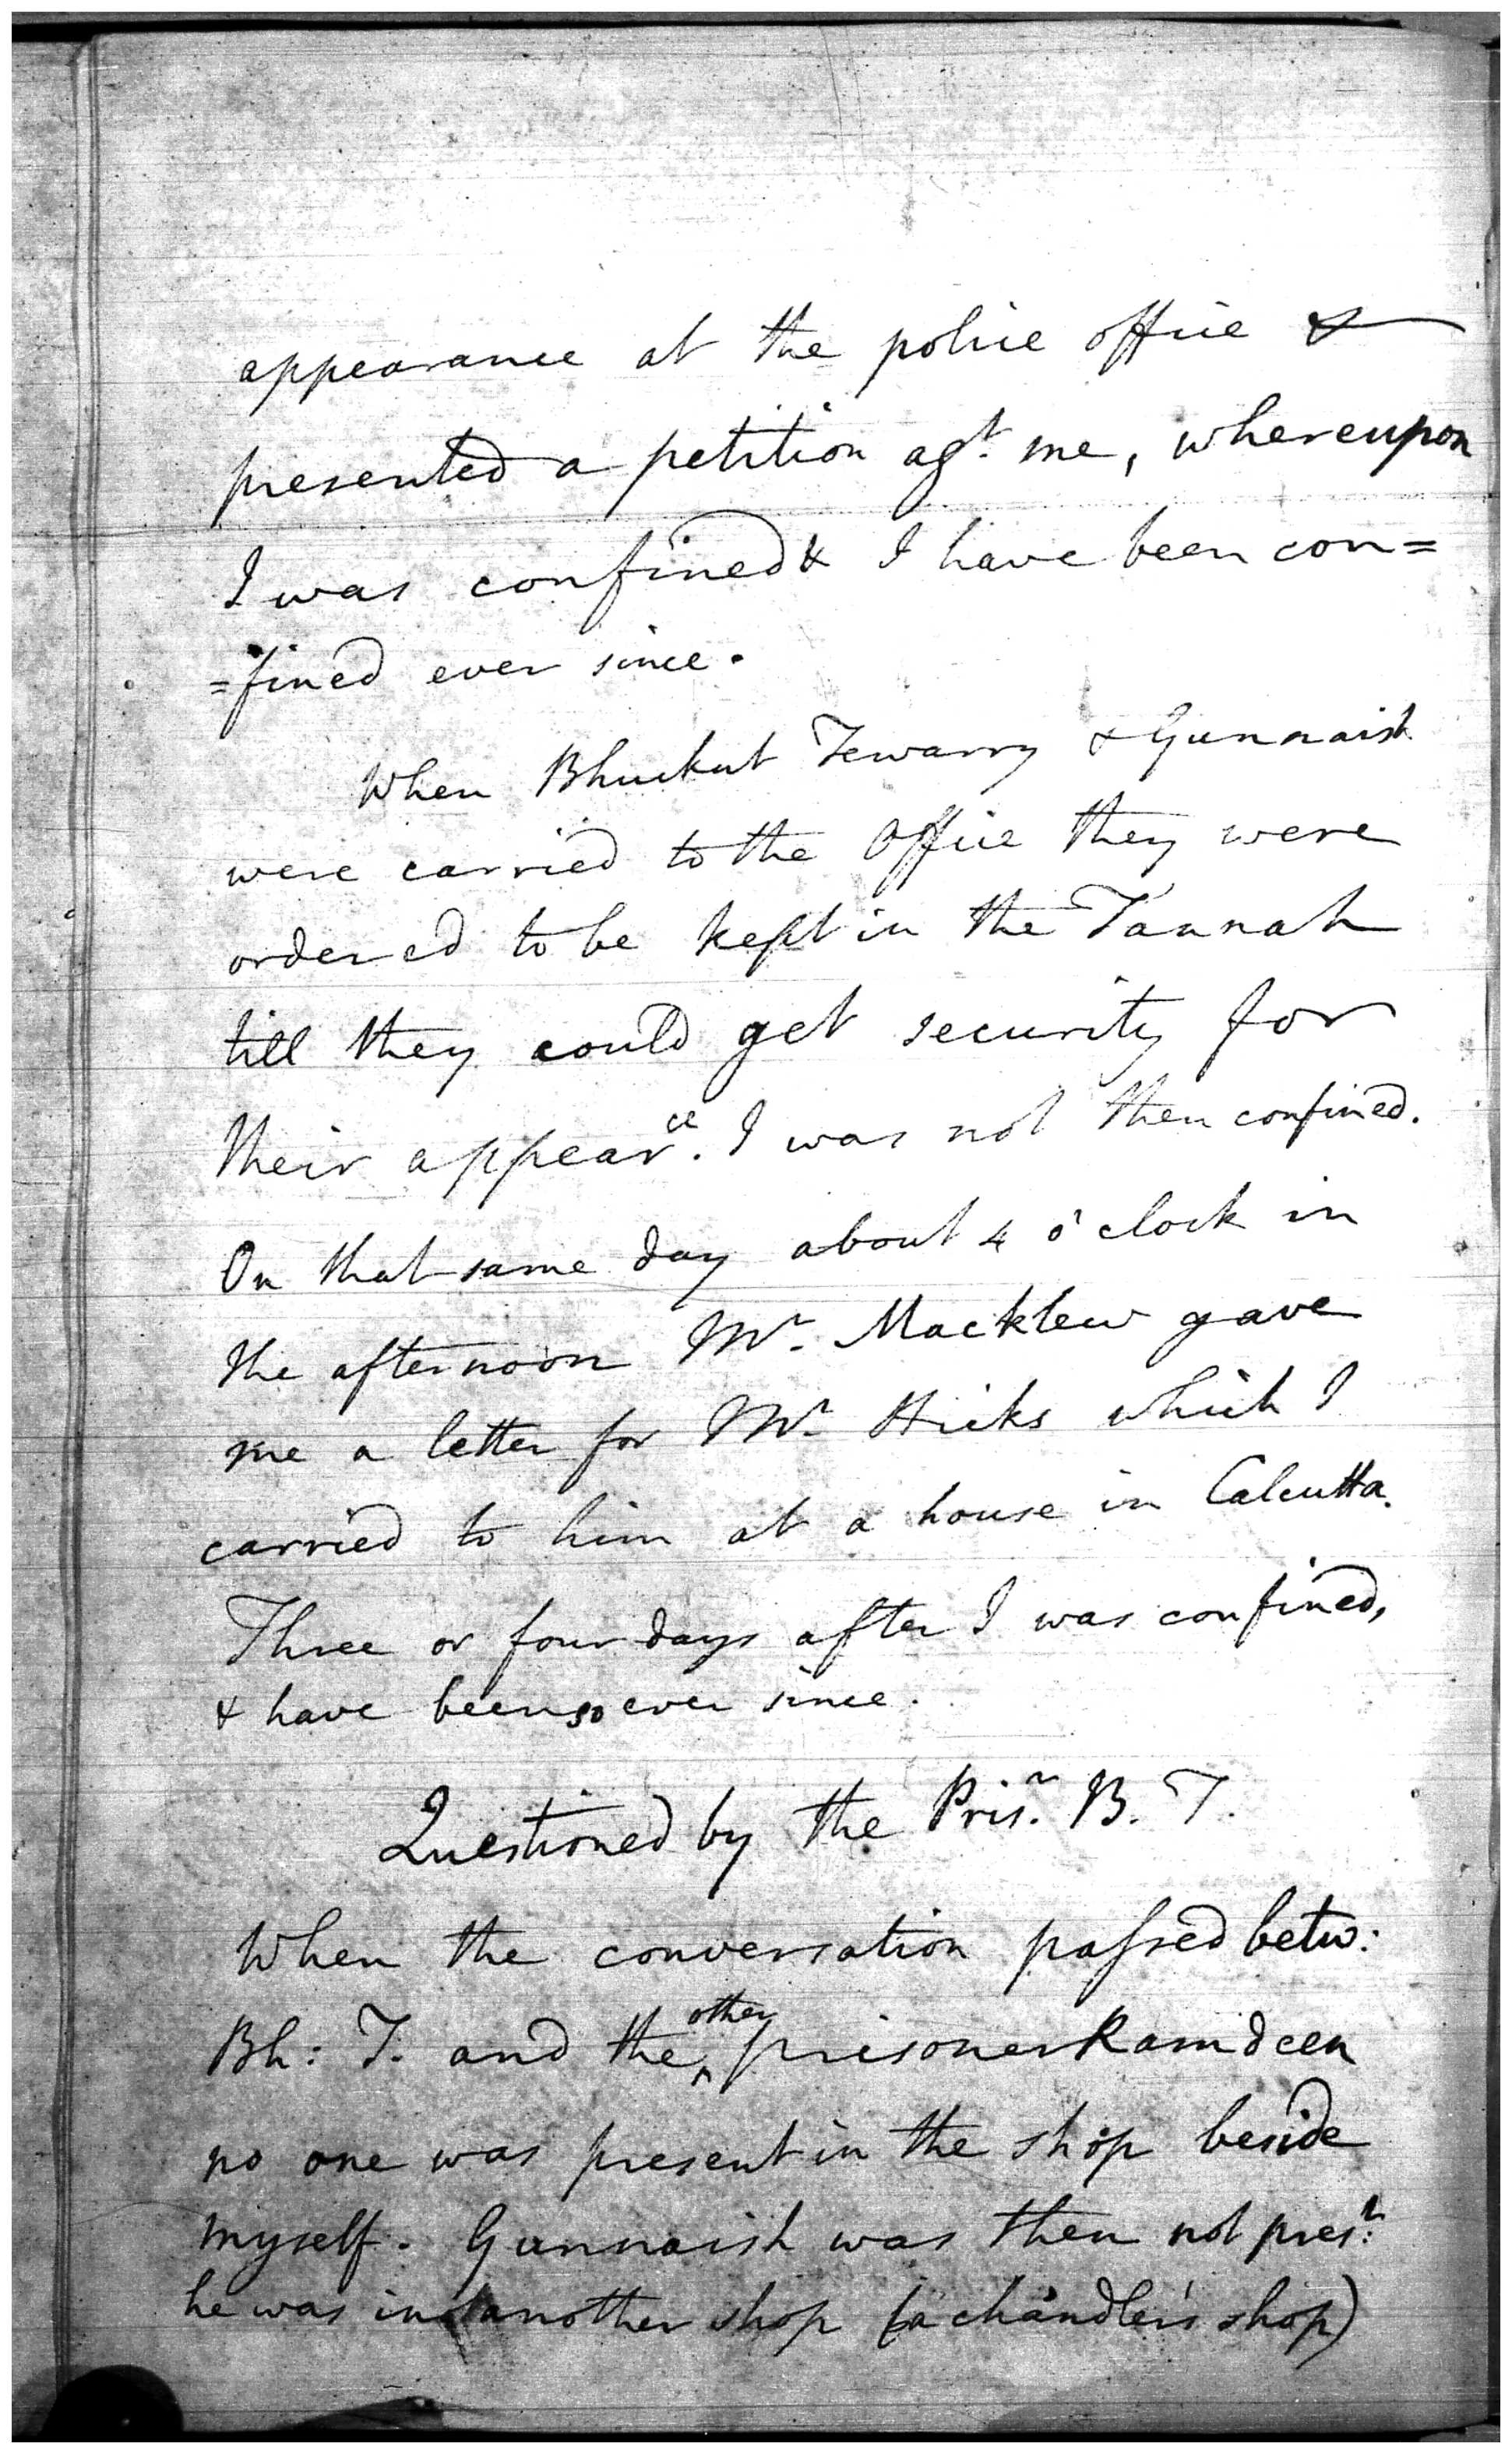 appearance at the police office &
presented a petition agt. me, whereupon
I was confined & I have been con=
=fined ever since.
When Bhuckut Tewarry & Gunnaish
were carried to the Office they were
ordered to be kept in the Tannah
till they could get security for
their appearce. I was not then confined.
On that same day about 4 o'clock in
the afternoon Mr. Macklew gave
me a letter for Mr. Hicks which I
carried to him at a house in Calcutta.
Three or four days after I was confined,
& have been so ever since.
Questioned by the Prisr. B. T.
When the conversation passed betw:
Bh: T. and the other prisoner Ramdeen
no one was present in the shop beside
myself. Gunnaish was then not prest:
he was in another shop (a chandler's shop)